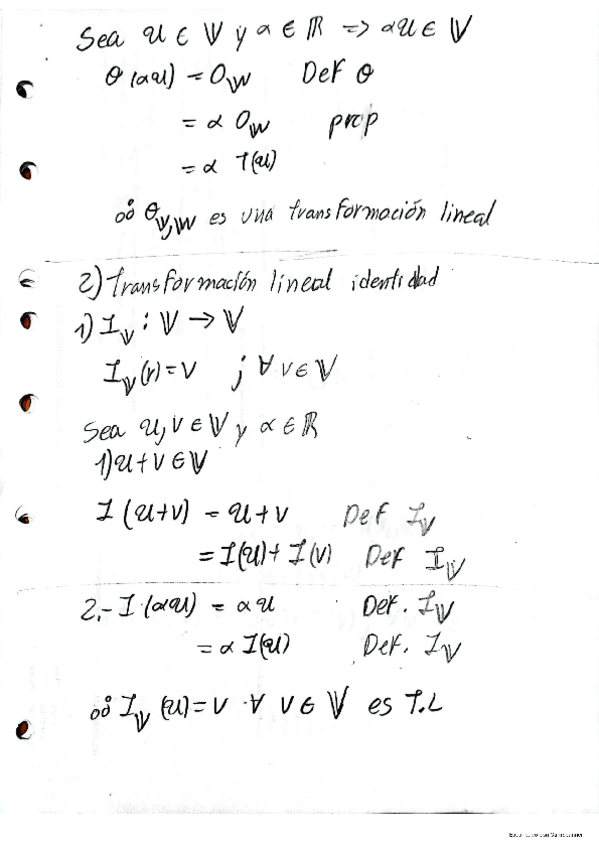 Sea u ∈ V y α ∈ ℝ => αu ∈ V
θ(αu) = 0_W Def θ
= α 0_W prop
= α T(u)
∴ θ_V,W es una transformación lineal
2) transformación lineal identidad
1) I_V : V → V
I_V(v) = v ; ∀ v ∈ V
Sea u, v ∈ V y α ∈ ℝ
1) u + v ∈ V
I (u+v) = u + v Def I_V
= I(u) + I(v) Def I_V
2.- I (αu) = αu Def. I_V
= α I(u) Def. I_V
∴ I_V (u) = v ∀ v ∈ V es T.L